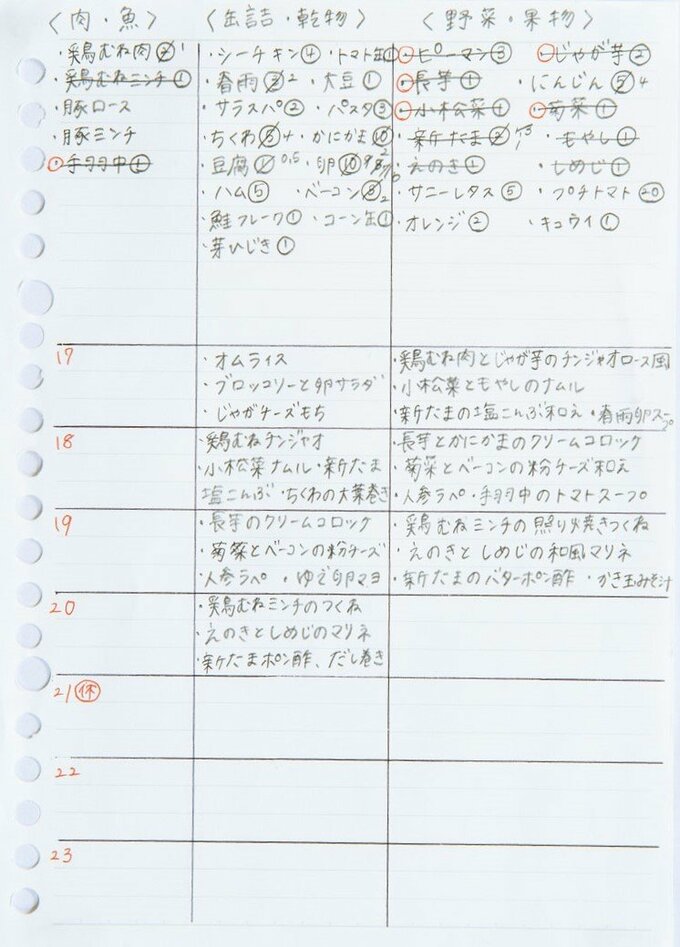 〈肉・魚〉 〈缶詰・乾物〉 〈野菜・果物〉
・鶏むね肉② 1 ・シーチキン④ ・トマト缶① ・ピーマン③ ・じゃが芋②
・鶏むねミンチ① ・春雨③ 2 ・大豆① ・長芋① ・にんじん⑤ 4
・豚ロース ・サラスパ② ・パスタ③ ・小松菜① ・菊菜①
・豚ミンチ ・ちくわ⑤ 4 ・かにかま⑩ ・新たま ・もやし①
・手羽中① ・豆腐① 0.5 ・卵⑩ ・えのき① ・しめじ①
・ハム⑤ ・ベーコン 2 ・サニーレタス⑤ ・プチトマト⑳
・鮭フレーク① ・コーン缶① ・オレンジ② ・キュウイ①
・芽ひじき①
17
・オムライス
・ブロッコリーと卵サラダ
・じゃがチーズもち
・鶏むね肉とじゃが芋のチンジャオロース風
・小松菜ともやしのナムル
・新たまの塩こんぶ和え ・春雨卵スープ
18
・鶏むねチンジャオ
・小松菜ナムル ・新たま
塩こんぶ ・ちくわの大葉巻き
・長芋とかにかまのクリームコロッケ
・菊菜とベーコンの粉チーズ和え
・人参ラペ ・手羽中のトマトスープ
19
・長芋のクリームコロッケ
・菊菜とベーコンの粉チーズ
・人参ラペ ・ゆで卵マヨ
・鶏むねミンチの照り焼きつくね
・えのきとしめじの和風マリネ
・新たまのバターポン酢 ・かき玉みそ汁
20
・鶏むねミンチのつくね
・えのきとしめじのマリネ
・新たまポン酢、だし巻き
21 休
22
23